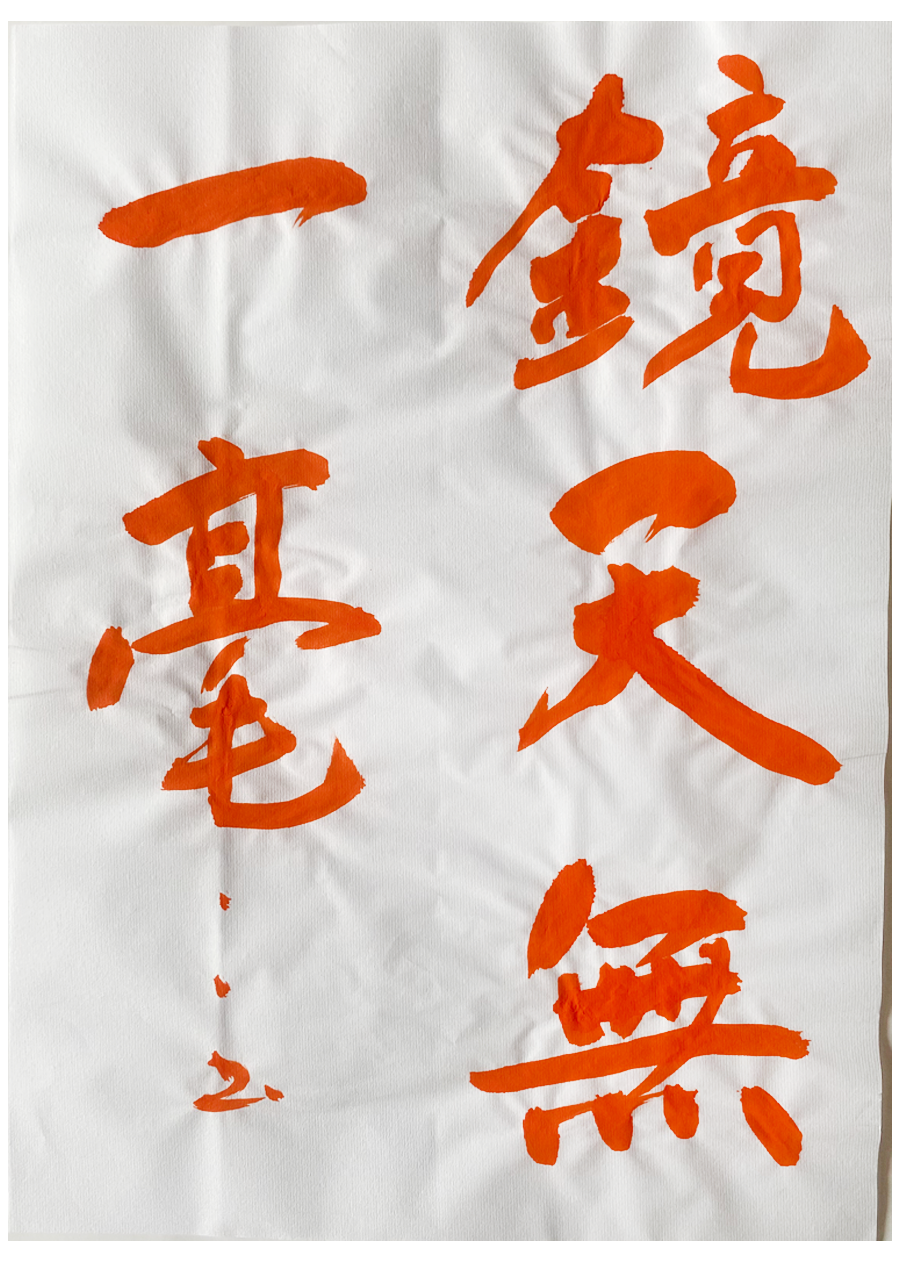 鏡天無
一毫